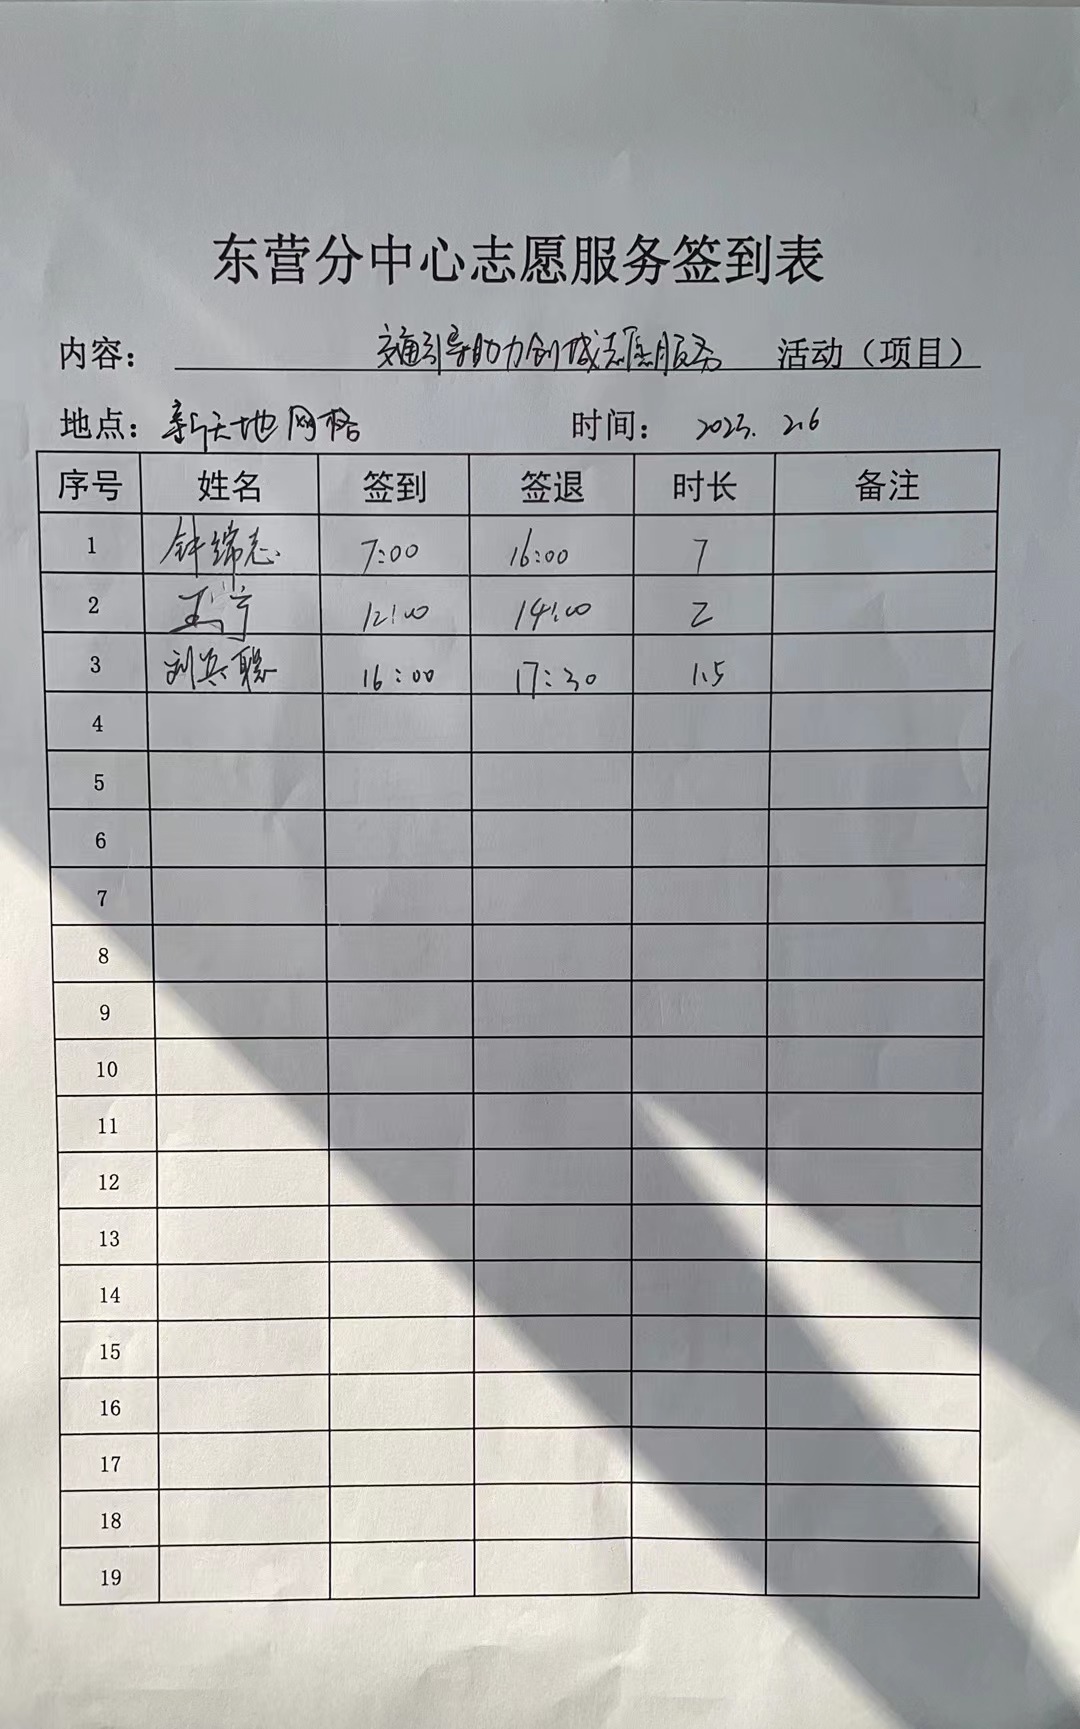 东营分中心志愿服务签到表
内容： 交通引导助力创城志愿服务 活动（项目）
地点：新天地网格 时间： 2023. 2.6
序号 姓名 签到 签退 时长 备注
1 钟瑞志 7:00 16:00 7
2 12:00 14:00 2
3 刘兵聪 16:00 17:30 1.5
4
5
6
7
8
9
10
11
12
13
14
15
16
17
18
19